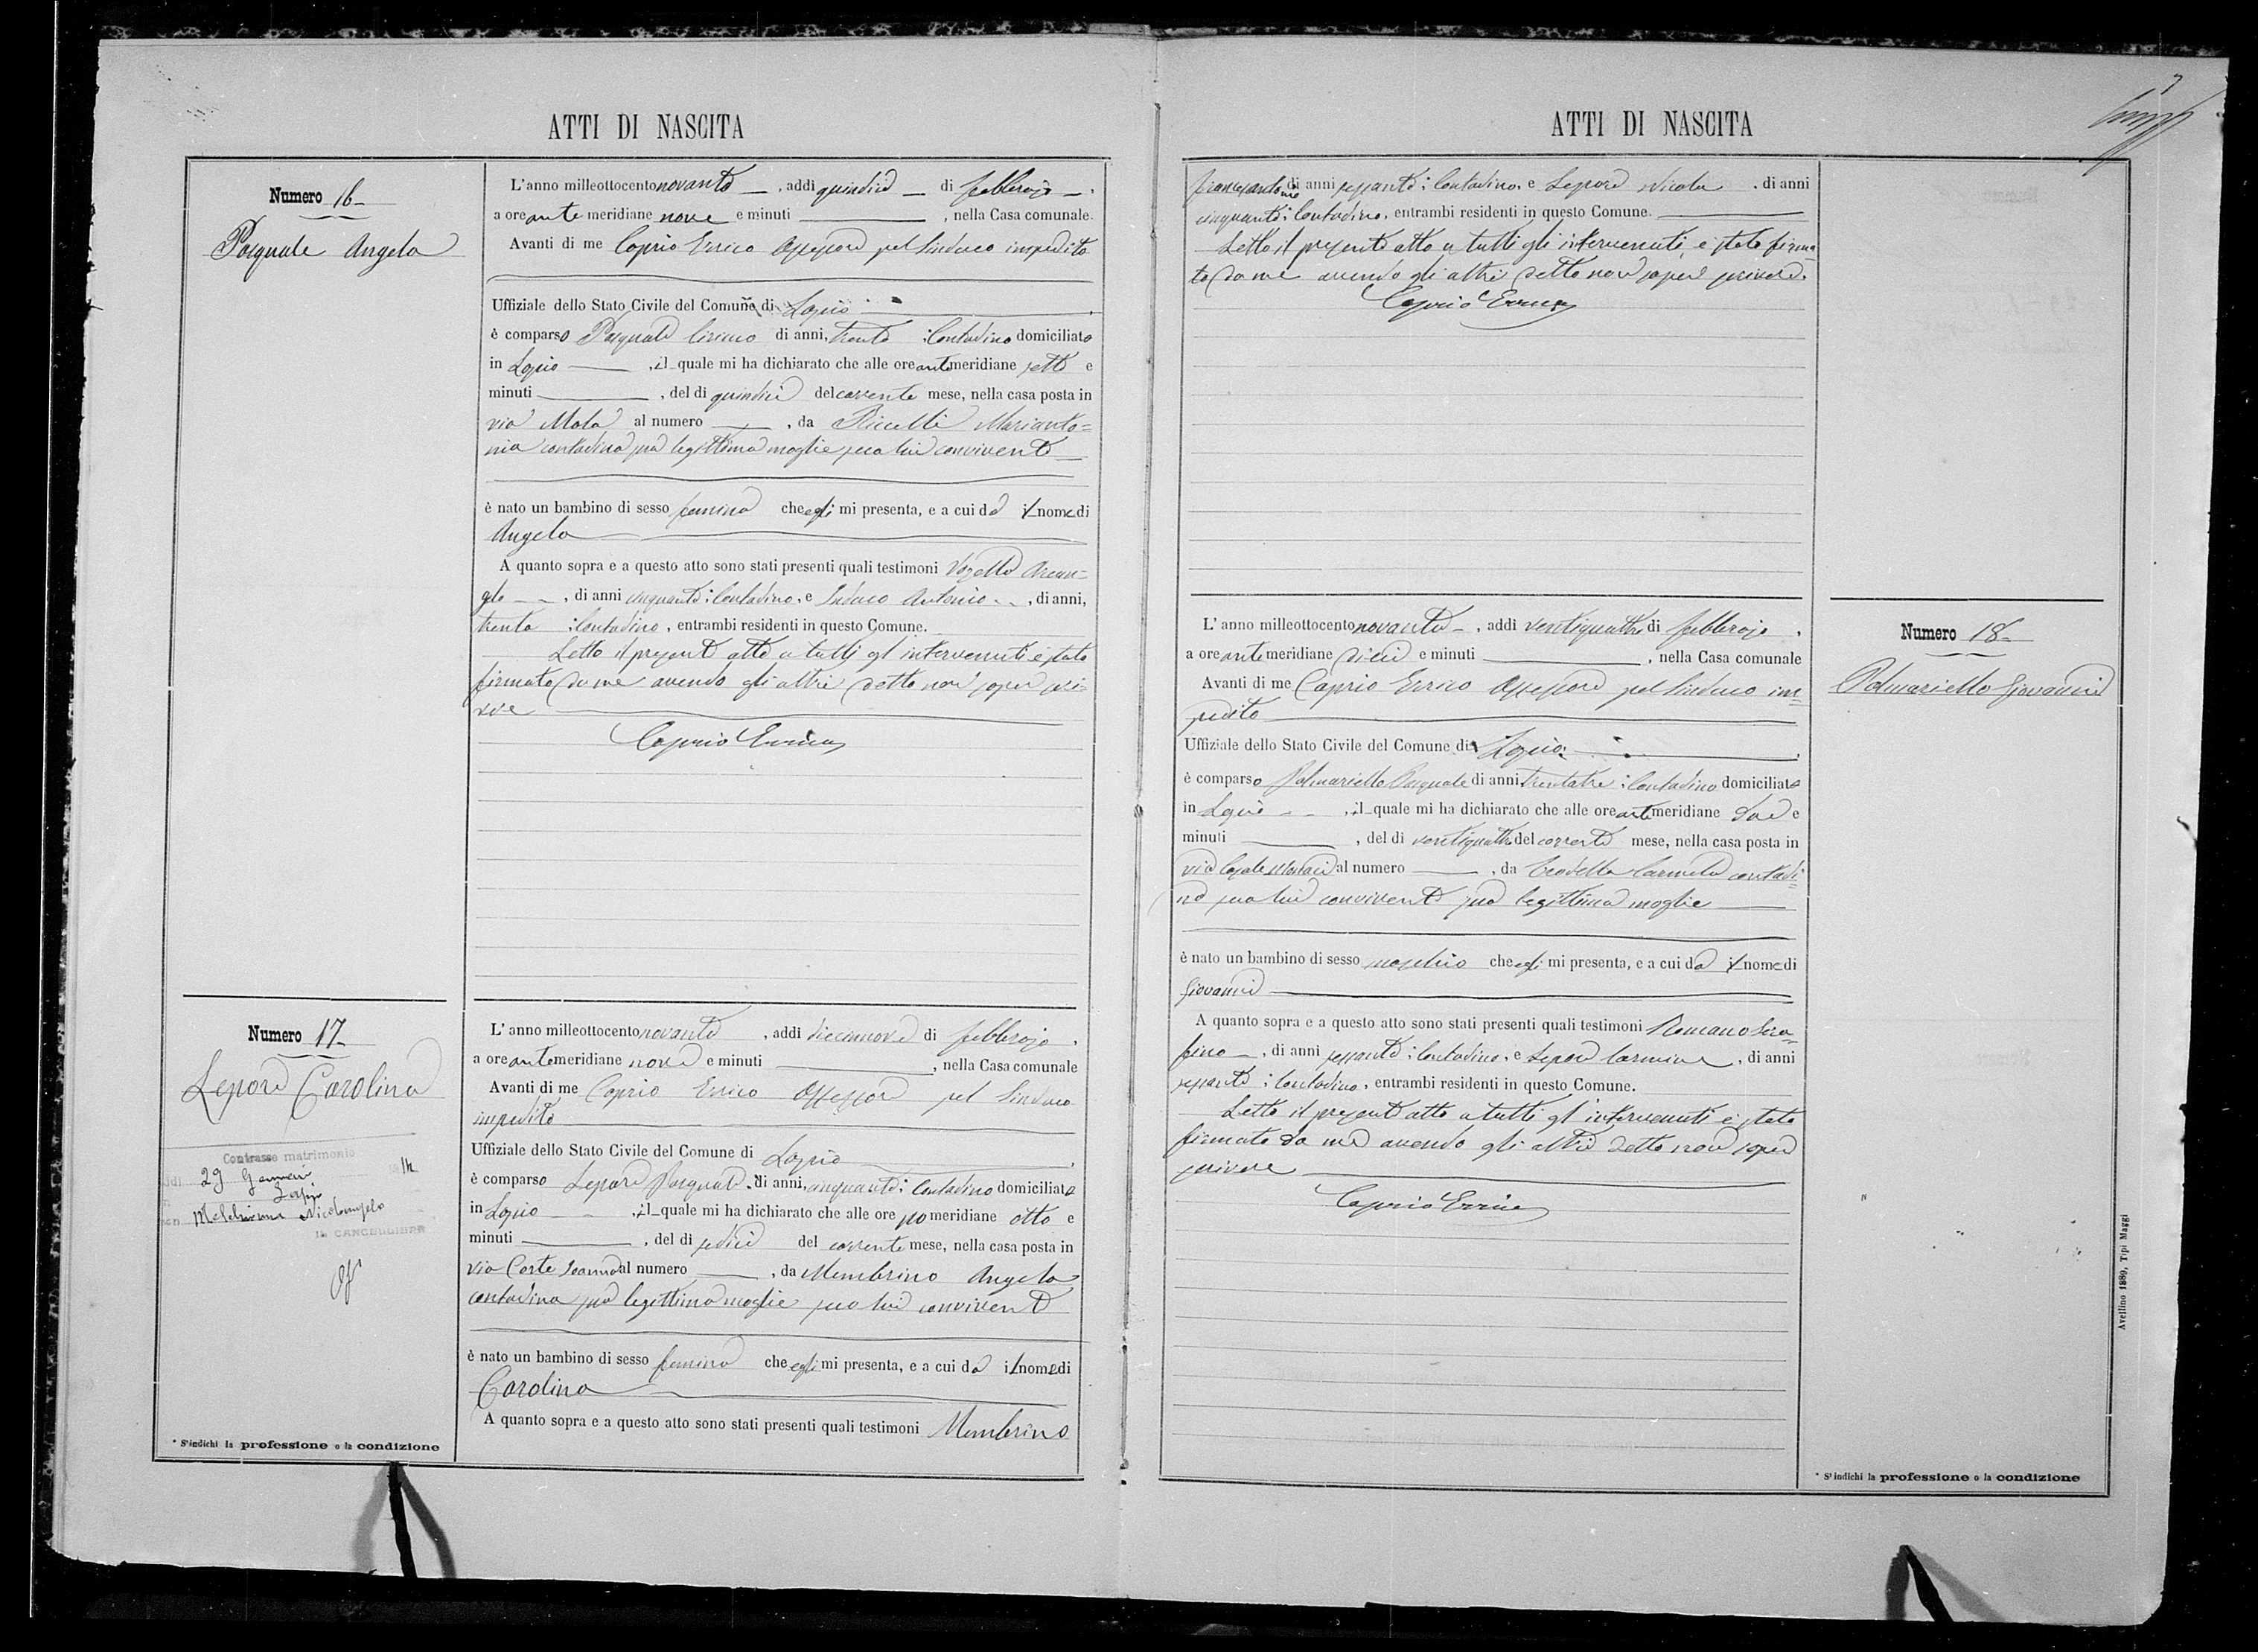 ATTI DI NASCITA
Numero 16
Pasquale Angela
L'anno milleottocentonovanta, addi quindici di febbrajo,
a ore ante meridiane nove e minuti, nella Casa comunale.
Avanti di me Caprio Errico Assessore pel Sindaco impedito
Uffiziale dello Stato Civile del Comune di Lapio
è comparso Pasquale Ciriaco di anni, trenta; Contadino domiciliato
in Lapio, il quale mi ha dichiarato che alle ore antemeridiane sette e
minuti, del di quindici del corrente mese, nella casa posta in
via Mola al numero, da Riccelli Marianto=
nia contadina sua legittima moglie seco lui convivente
è nato un bambino di sesso feminino che egli mi presenta, e a cui da il nome di
Angela
A quanto sopra e a questo atto sono stati presenti quali testimoni Arcan=
gelo, di anni cinquanta; Contadino, e Antonio, di anni,
trenta; Contadino, entrambi residenti in questo Comune.
Letto il presente atto a tutti gl'intervenuti è stato
firmato da me avendo gli altri detto non saper scri=
vere
Caprio Errico
Numero 17
Lepore Carolina
Contrasse matrimonio
29 Gennaio 14
Lapio
Nicolangelo
IL CANCELLIERE
L'anno milleottocentonovanta, addi diecinnove di febbrajo,
a ore antemeridiane nove e minuti, nella Casa comunale
Avanti di me Caprio Errico Assessore pel Sindaco
impedito
Uffiziale dello Stato Civile del Comune di Lapio
è comparso Lepore Pasquale, di anni, cinquanta; Contadino domiciliato
in Lapio, il quale mi ha dichiarato che alle ore pomeridiane otto e
minuti, del di sedici del corrente mese, nella casa posta in
via Corte Ioanna al numero, da Membrino Angela
contadina sua legittima moglie seco lui convivente
è nato un bambino di sesso feminino che egli mi presenta, e a cui da il nome di
Carolina
A quanto sopra e a questo atto sono stati presenti quali testimoni Membrino
* S'indichi la professione o la condizione
ATTI DI NASCITA
Francescantonio di anni sessanta; Contadino, e Lepore Nicola, di anni
cinquanta; Contadino, entrambi residenti in questo Comune.
Letto il presente atto a tutti gli intervenuti, è stato firma=
to da me avendo gli altri detto non saper scrivere.
Caprio Errico
Numero 18
Palmariello Giovanni
L'anno milleottocentonovanta, addi ventiquattro di febbrajo,
a ore antemeridiane dieci e minuti, nella Casa comunale
Avanti di me Caprio Errico Assessore pel Sindaco im=
pedito
Uffiziale dello Stato Civile del Comune di Lapio
è comparso Palmariello Pasquale di anni trentatre; Contadino domiciliato
in Lapio, il quale mi ha dichiarato che alle ore antemeridiane due e
minuti, del di ventiquattro del corrente mese, nella casa posta in
via Casale al numero, da Carmela contadi=
na seco lui convivente sua legittima moglie
è nato un bambino di sesso maschio che egli mi presenta, e a cui da il nome di
Giovanni
A quanto sopra e a questo atto sono stati presenti quali testimoni Romano Sera=
fino, di anni sessanta; Contadino, e Lepore Carmine, di anni
sessanta; Contadino, entrambi residenti in questo Comune.
Letto il presente atto a tutti gl'intervenuti è stato
firmato da me avendo gli altri detto non saper
scrivere
Caprio Errico
Avellino 1889, Tipi Maggi
* S'indichi la professione o la condizione